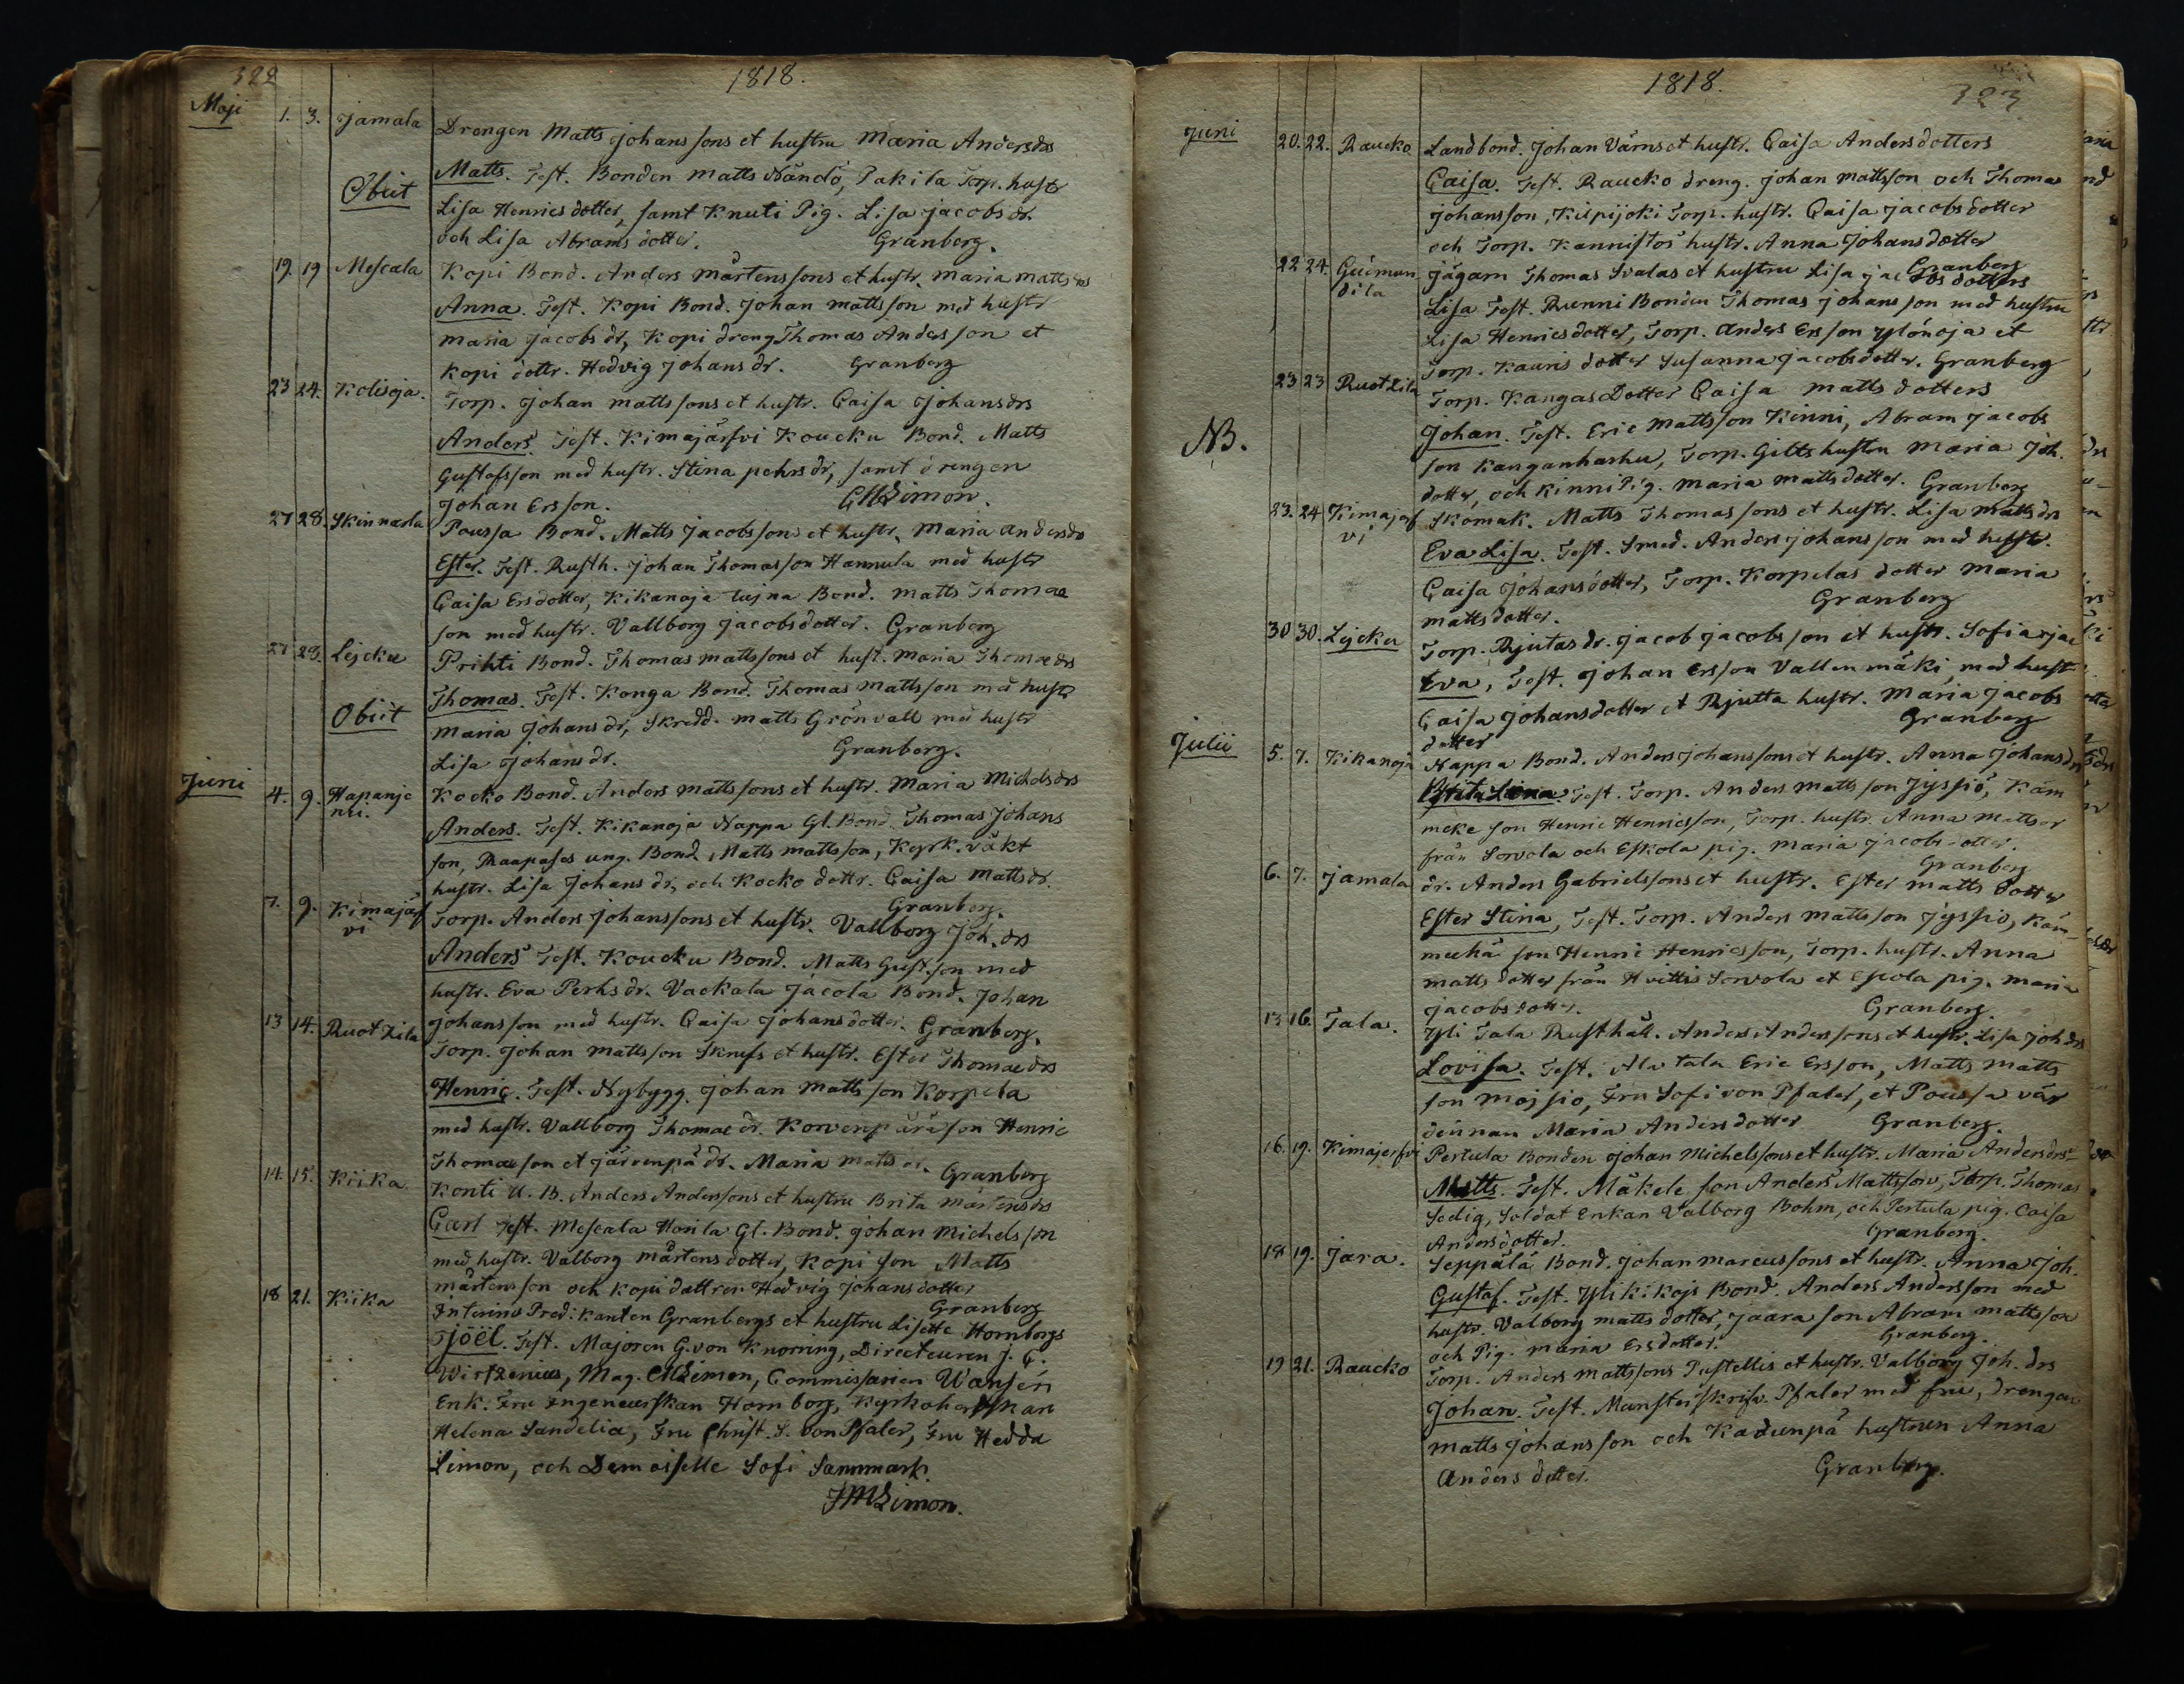 322
1818.
Maji
1. 3. Jamala Drengen Matts Johanssons et hustru Maria Andersdrs
Matts. Test. Bonden Matts Nändö, Pakila Torp. hustr
Obiit
Lisa Henricsdotter, samt Knuti Pig. Lisa Jacobsdr.
och Lisa Abramsdotter. Granberg.
19. 19 Mescala Kopi Bond. Anders Mårtenssons et hustr. Maria Mattsdrs
Anna. Test. Kopi Bond. Johan Mattsson med hustr
Maria Jacobsdr, Kopi dreng Thomas Andersson et
Kopi dottr. Hedvig Johansdr. Granberg
23 24. Kolisoja. Torp. Johan Mattssons et hustr. Caisa Johansdrs
Anders. Test. Kimajärfvi Koucku Bond. Matts
Gustafsson med hustr. Stina pehrsdr, samt drengen
Johan Ersson. Limon.
27 28. Skinnarla Poussa Bond. Matts Jacobssons et hustr. Maria Andersdrs
Ester. Test. Rusth. Johan Thomasson Hannula med hustr
Caisa Ersdotter, Kikanoja Bond. Matts Thomae
son med hustr. Vallborg Jacobsdotter. Granberg
27 28. Lejcku Prihti Bond. Thomas Mattssons et hust. Maria Thomaedrs
Thomas. Test. Konga Bond. Thomas Mattsson med hustr
Obiit
Maria Johansdr, Skredd. Matts Grönvall med hustr
Lisa Johansdr. Granberg.
Juni
4. 9. Hapanje Kocko Bond. Anders Mattssons et hustr. Maria Michelsdrs
nu.
Anders. Test. Kikanoja Nappa Gl. Bond. Thomas Johans
son, Raapases ung. Bond. Matts Mattsson, Kyrk.väkt
hustr. Lisa Johansdr, och Kocko dottr. Caisa Mattsdr.
Granberg.
7. 9. Kimajärf Torp. Anders Johanssons et hustr. Vallborg Joh.drs
vi
Anders Test. Koucku Bond. Matts Gust.son med
hustr. Eva Perhsdr. Vackala Jacola Bond. Johan
Johansson med hustr. Caisa Johansdotter. Granberg.
13 14. Ruotzila Torp. Johan Mattsson et hustr. Ester Thomaedrs
Henric. Test. Nybygg. Johan Mattsson Korpela
med hustr. Vallborg Thomaedr. Korvenpärä son Henric
Thomaeson et Järvenpä dr. Maria Mattsdr. Granberg
14. 15. Kiika Konti U. B. Anders Anderssons et hustru Brita Mårtensdrs
Carl Test. Mescala Horila Gl. Bond. Johan Michelsson
med hustr. Valborg Mårtensdotter, Kopi son Matts
Mårtensson och Kopi dottren Hedvig Johansdotter
Granberg
18 21. Kiika Interims Predikanten Granbergs et hustru Lisette Hornborgs
Tjöёl. Test. Majoren G. von Knorring, Directeuren J. G.
Wirtzenius, Mag. Limon, Commissarien Wansén
Enk. Fru Ingeneurskan Hornborg, Kyrkoherdskan
Helena Sandelia, Fru Christ. S. von Pfaler, Fru Hedda
Limon, och Demoiselle Sofi Sannmark.
Limon.
1818.
323
Juni
20. 22. Raucko Landbond. Johan Värns et hustr. Caisa Andersdotters
Caisa. Test. Raucko dreng. Johan Mattsson och Thomas
Johansson, Kilpijoki Torp. hustr. Caisa Jacobsdotter
och Torp. Kannistos hustr. Anna Johansdotter
Granberg
22 24. Guémun Jägarn Thomas Svalas et hustru Lisa Jacobsdotters
dila
Lisa Test. Runni Bonden Thomas Johansson med hustru
Lisa Henricsdotter, Torp. Anders Ersson Ylönoja et
Torp. Kauris dotter Susanna Jacobsdotter. Granberg
23 23 Ruotzila Torp. Kangas Dotter Caisa Mattsdotters
NB.
Johan. Test. Eric Mattsson Kinni, Abram Jacobs
son Kanganharhu, Torp. Gitts hustru Maria Joh.
dotter, och Kinni Pig. Maria Mattsdotter. Granberg
23. 24 Kimajaf Skomak. Matts Thomassons et hustr. Lisa Mattsdrs
vi
Eva Lisa. Test. Smed. Anders Johansson med hustr.
Caisa Johansdotter, Torp. Korpelas dotter Maria
Mattsdotter. Granberg
30 30. Lejcku Torp. Rjutas dr. Jacob Jacobsson et hustr. Sofia Jac
Eva, Test. Johan Ersson Vallenmäki, med hust
Caisa Johansdotter et Rjutta hustr. Maria Jacobs
dotter Granberg
Julii
5. 7. Kikanoja Nappa Bond. Anders Johanssons et hustr. Anna Johansdr
Brita Lisa. Test. Torp. Anders Mattsson Jyssiö, Käm
meke son Henric Henricsson, Torp. hustr. Anna Mattsdr
från Sorvola och Eskola pig. Maria Jacobsdotter.
Granberg
6. 7. Jamala dr. Anders Gabrielssons et hustr. Ester Mattsdotter
Ester Stina, Test. Torp. Anders Mattsson Jyssiö, Käm-
mekä son Henri Henricsson, Torp. hustr. Anna
Mattsdotter från Hvittis Sorvola et Escola pig. Maria
Jacobsdotter. Granberg.
13 16. Tala. Yli Tala Rusthåll. Anders Anderssons et hustr. Lisa Johdrs
Lovisa. Test. Ala tala Eric Ersson, Matts Matts
son Mojsio, Fru Sofi von Pfaler, et Poussa vär
dinnan Maria Andersdotter Granberg.
16. 19. Kimajerfvi Pertula Bonden Johan Michelssons et hustr. Maria Andersdrs
Matts. Test. Mäkele son Anders Mattsson, Torp. Thomas
Sedig, Soldat Enkan Valborg Bohm, och Pertula pig. Caisa
Andersdotter. Granberg.
18 19. Jara. Seppälä Bond. Johan Marcussons et hustr. Anna Joh.
Gustaf. Test. Ylikikojs Bond. Anders Andersson med
hustr. Valborg Mattsdotter, Jaara son Abram Mattsson
och Pig. Maria Ersdotter. Granberg.
19 21. Raucko Torp. Anders Mattssons Pustellis et hustr. Valborg Joh.drs
Johan. Test. Munsterskrifv. Pfaler med fru, Drengen
Matts Johansson och Kadunpä hustrun Anna
Andersdotter. Granberg.